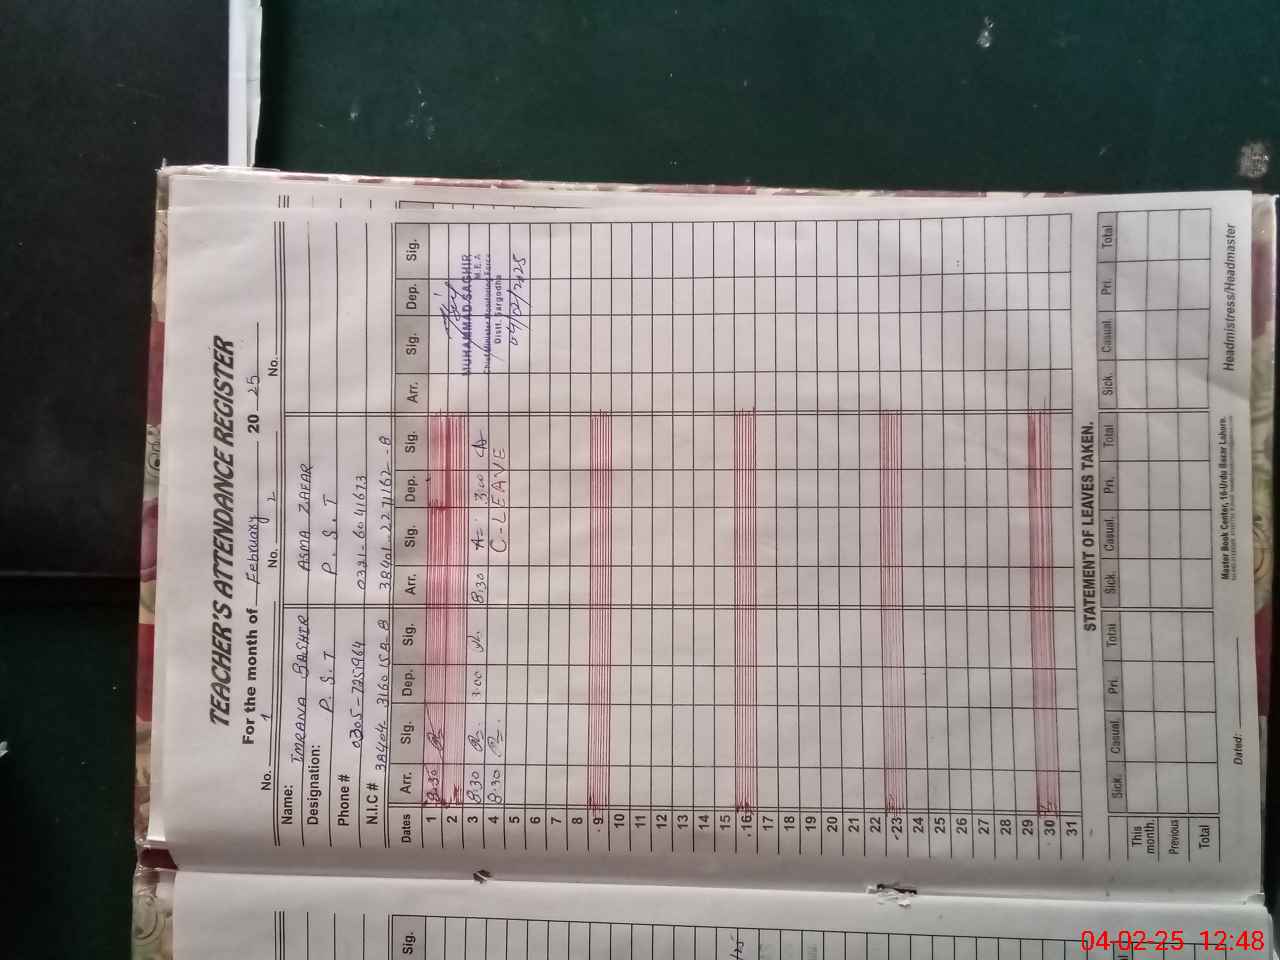 TEACHER'S ATTENDANCE REGISTER
For the month of February 2025
No. 1 No. 2 No.
Name: IMRANA BASHIR ASMA ZAFAR
Designation: P. S. T P. S. T
Phone # 0321-6041673
N.I.C #
Dates Arr. Sig. Dep. Sig. Arr. Sig. Dep. Sig. Arr. Sig. Dep. Sig.
1 8:30
2
3 8:30 3:00 8:30 3:00
4 8:30 C-LEAVE
5
6
7
8
9
10
11
12
13
14
15
16
17
18
19
20
21
22
23
24
25
26
27
28
29
30
31
MUHAMMAD SAGHIR
M.E.A
Chief Minister Monitoring Force
Distt. Sargodha
04/02/2025
STATEMENT OF LEAVES TAKEN.
Sick. Casual. Pri. Total Sick. Casual. Pri. Total Sick. Casual. Pri. Total
This month.
Previous
Total
Master Book Center, 16-Urdu Bazar Lahore.
Dated: Headmistress/Headmaster
Sig.
04-02-25 12:48